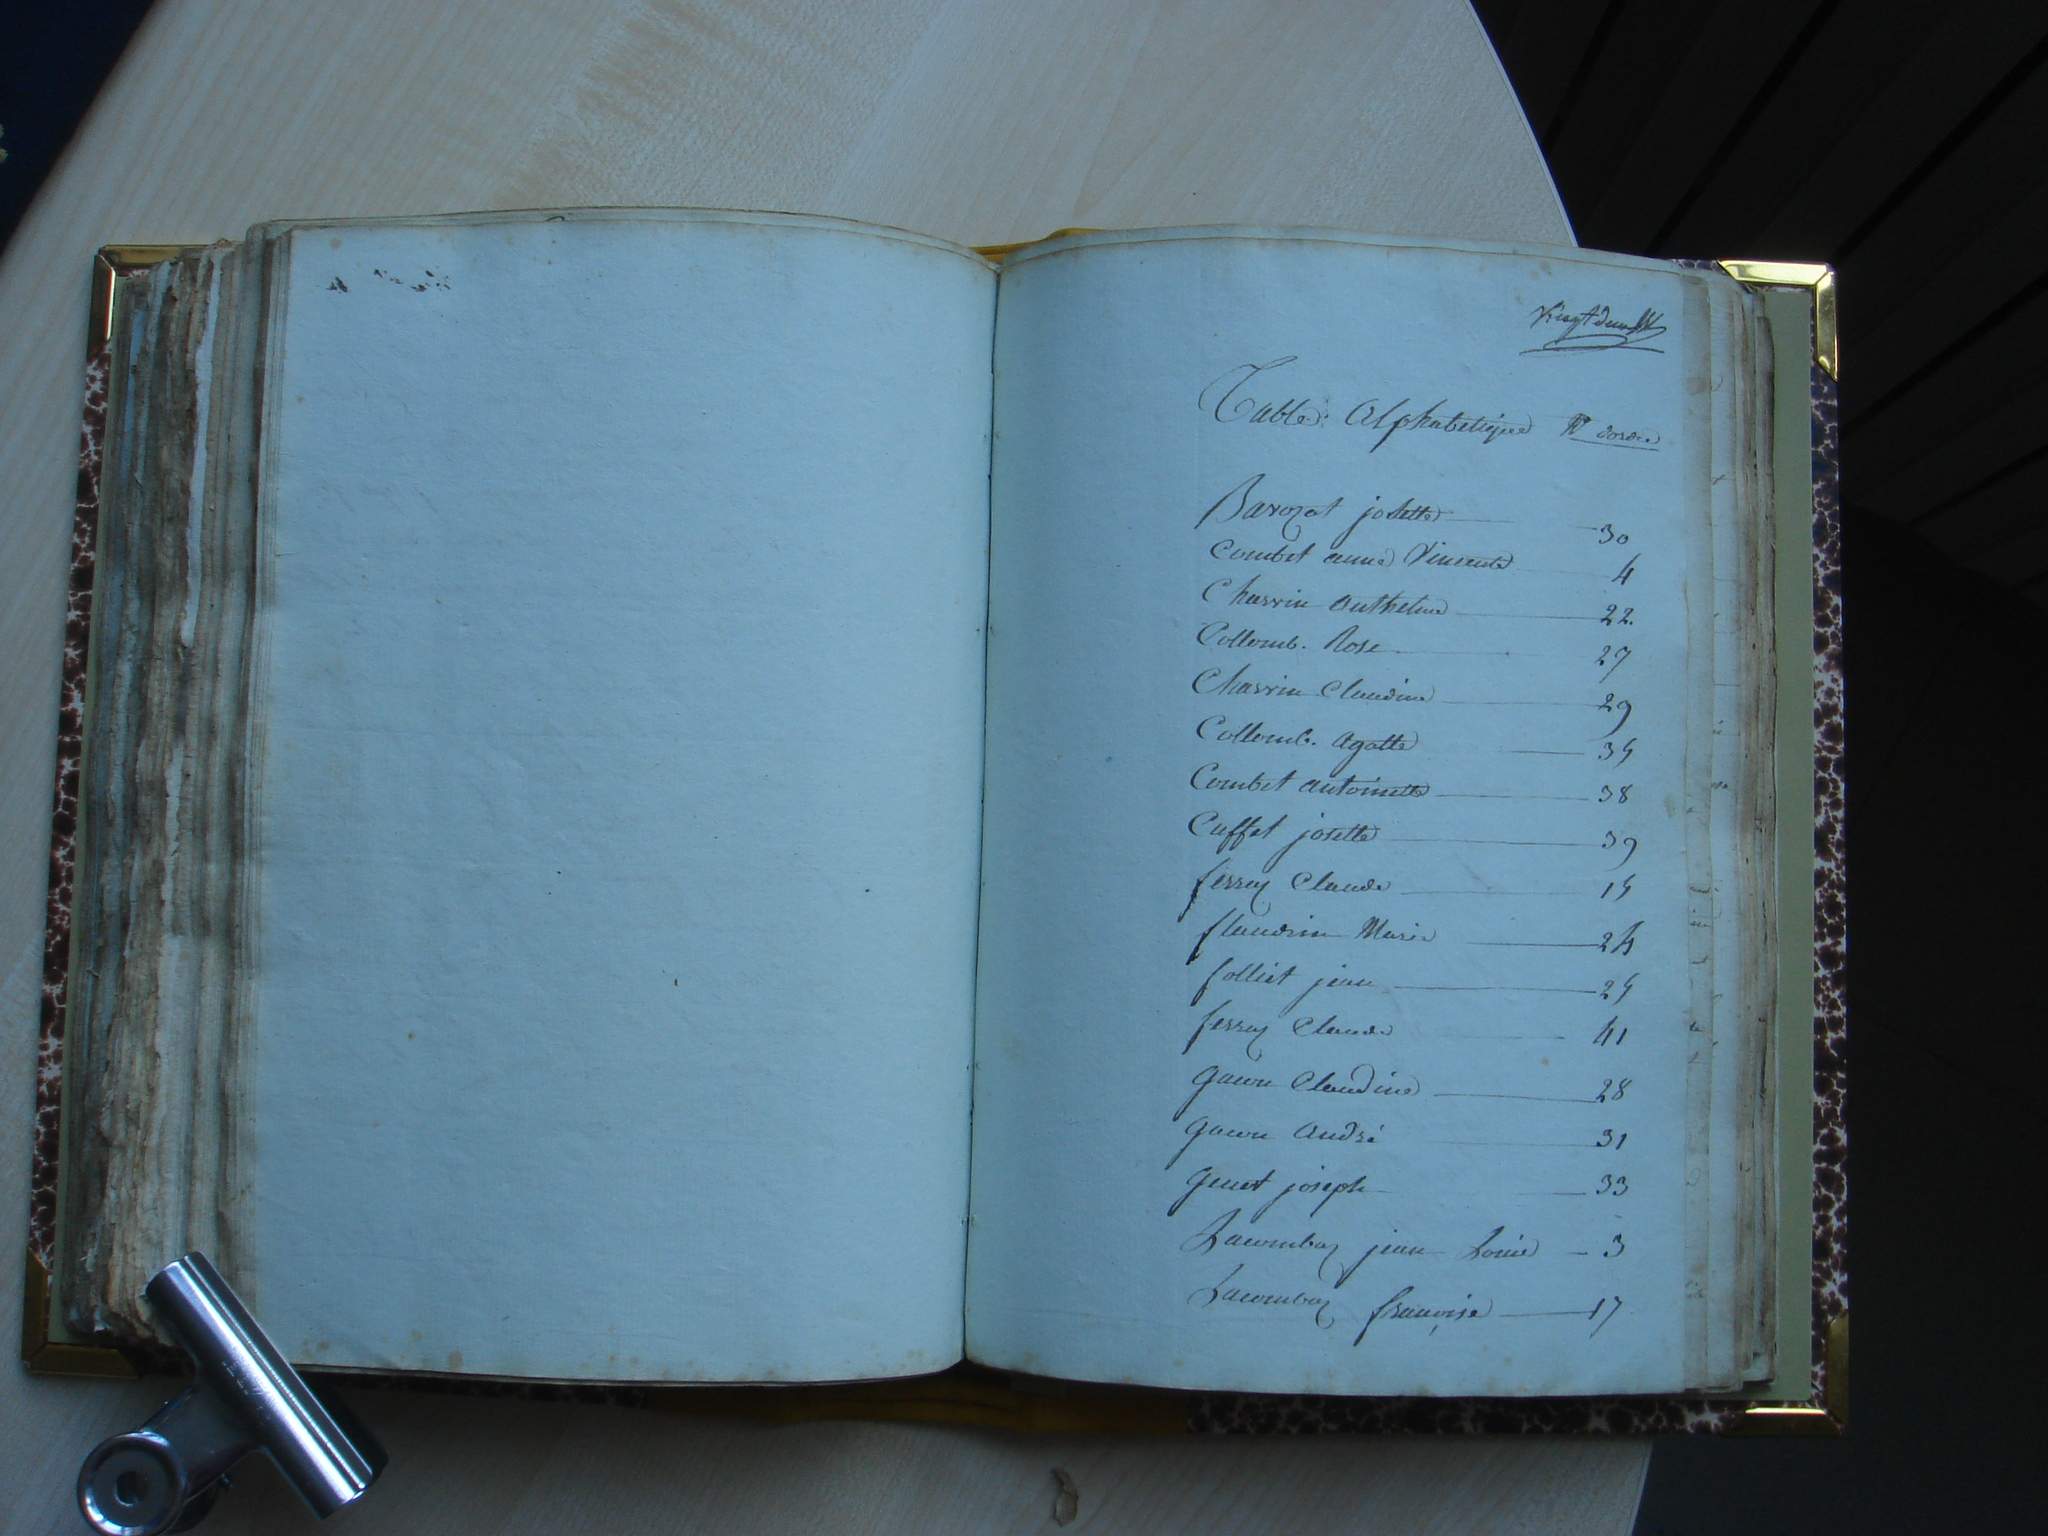 Vingt deux
Table Alphabetique No dordre
Barozat josette 30
Combet anne Vincente 4
Charvin anthelme 22
Collomb. Rose 27
Charvin Claudine 29
Collomb. agatte 35
Combet antoinette 38
Cuffet josette 39
ferrey Claude 15
flandrin Marie 24
folliet jean 25
ferrey Claude 41
gacon Claudine 28
gacon andré 31
genet joseph 33
Lacombaz jean Louis 3
Lacombaz françoise 17